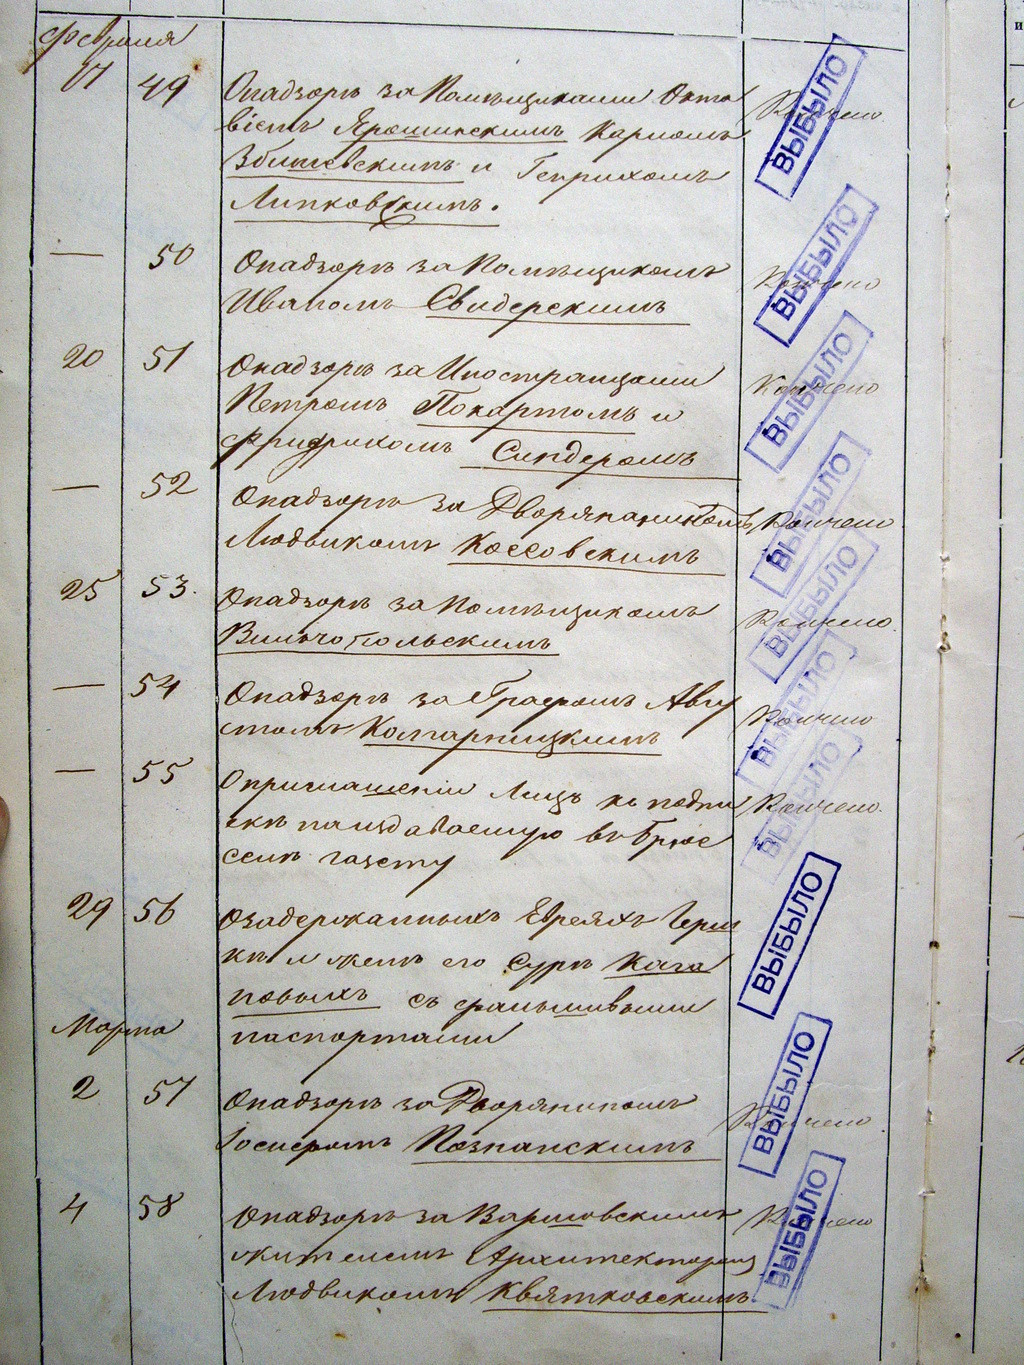 Февраля
17 49 О надзоре за Помѣщиками Окта
віемъ Ярошинскимъ Карломъ
Збышевскимъ и Генрихомъ
Липковскимъ.
Кончено
ВЫБЫЛО
— 50 О надзорѣ за Помѣщикомъ
Иваномъ Свидерскимъ
Кончено
ВЫБЫЛО
20 51 О надзорѣ за Иностранцами
Петромъ Покартомъ и
Фридрихомъ Синдеромъ
Кончено
ВЫБЫЛО
— 52 О надзорѣ за Дворяниномъ
Людвикомъ Коссовскимъ
Кончено
ВЫБЫЛО
25 53. О надзорѣ за Помѣщикомъ
Вильчопольскимъ
Кончено
ВЫБЫЛО
— 54 О надзорѣ за Графомъ Авгу
стомъ Комарницкимъ
Кончено
ВЫБЫЛО
— 55 О приглашеніи Лицъ къ подпи
скѣ на издаваемую въ Брюс
селѣ газету
Кончено.
ВЫБЫЛО
29 56 О задержанныхъ Евреяхъ Герш
кѣ и женѣ его Сурѣ Кага
новыхъ съ фальшивыми
паспортами
ВЫБЫЛО
Марта
2 57 О надзорѣ за Дворяниномъ
Іосифомъ Познанскимъ
Кончено.
ВЫБЫЛО
4 58 О надзорѣ за Варшовскимъ
жителемъ Архитекторомъ
Людвикомъ Квятковскимъ
Кончено
ВЫБЫЛО